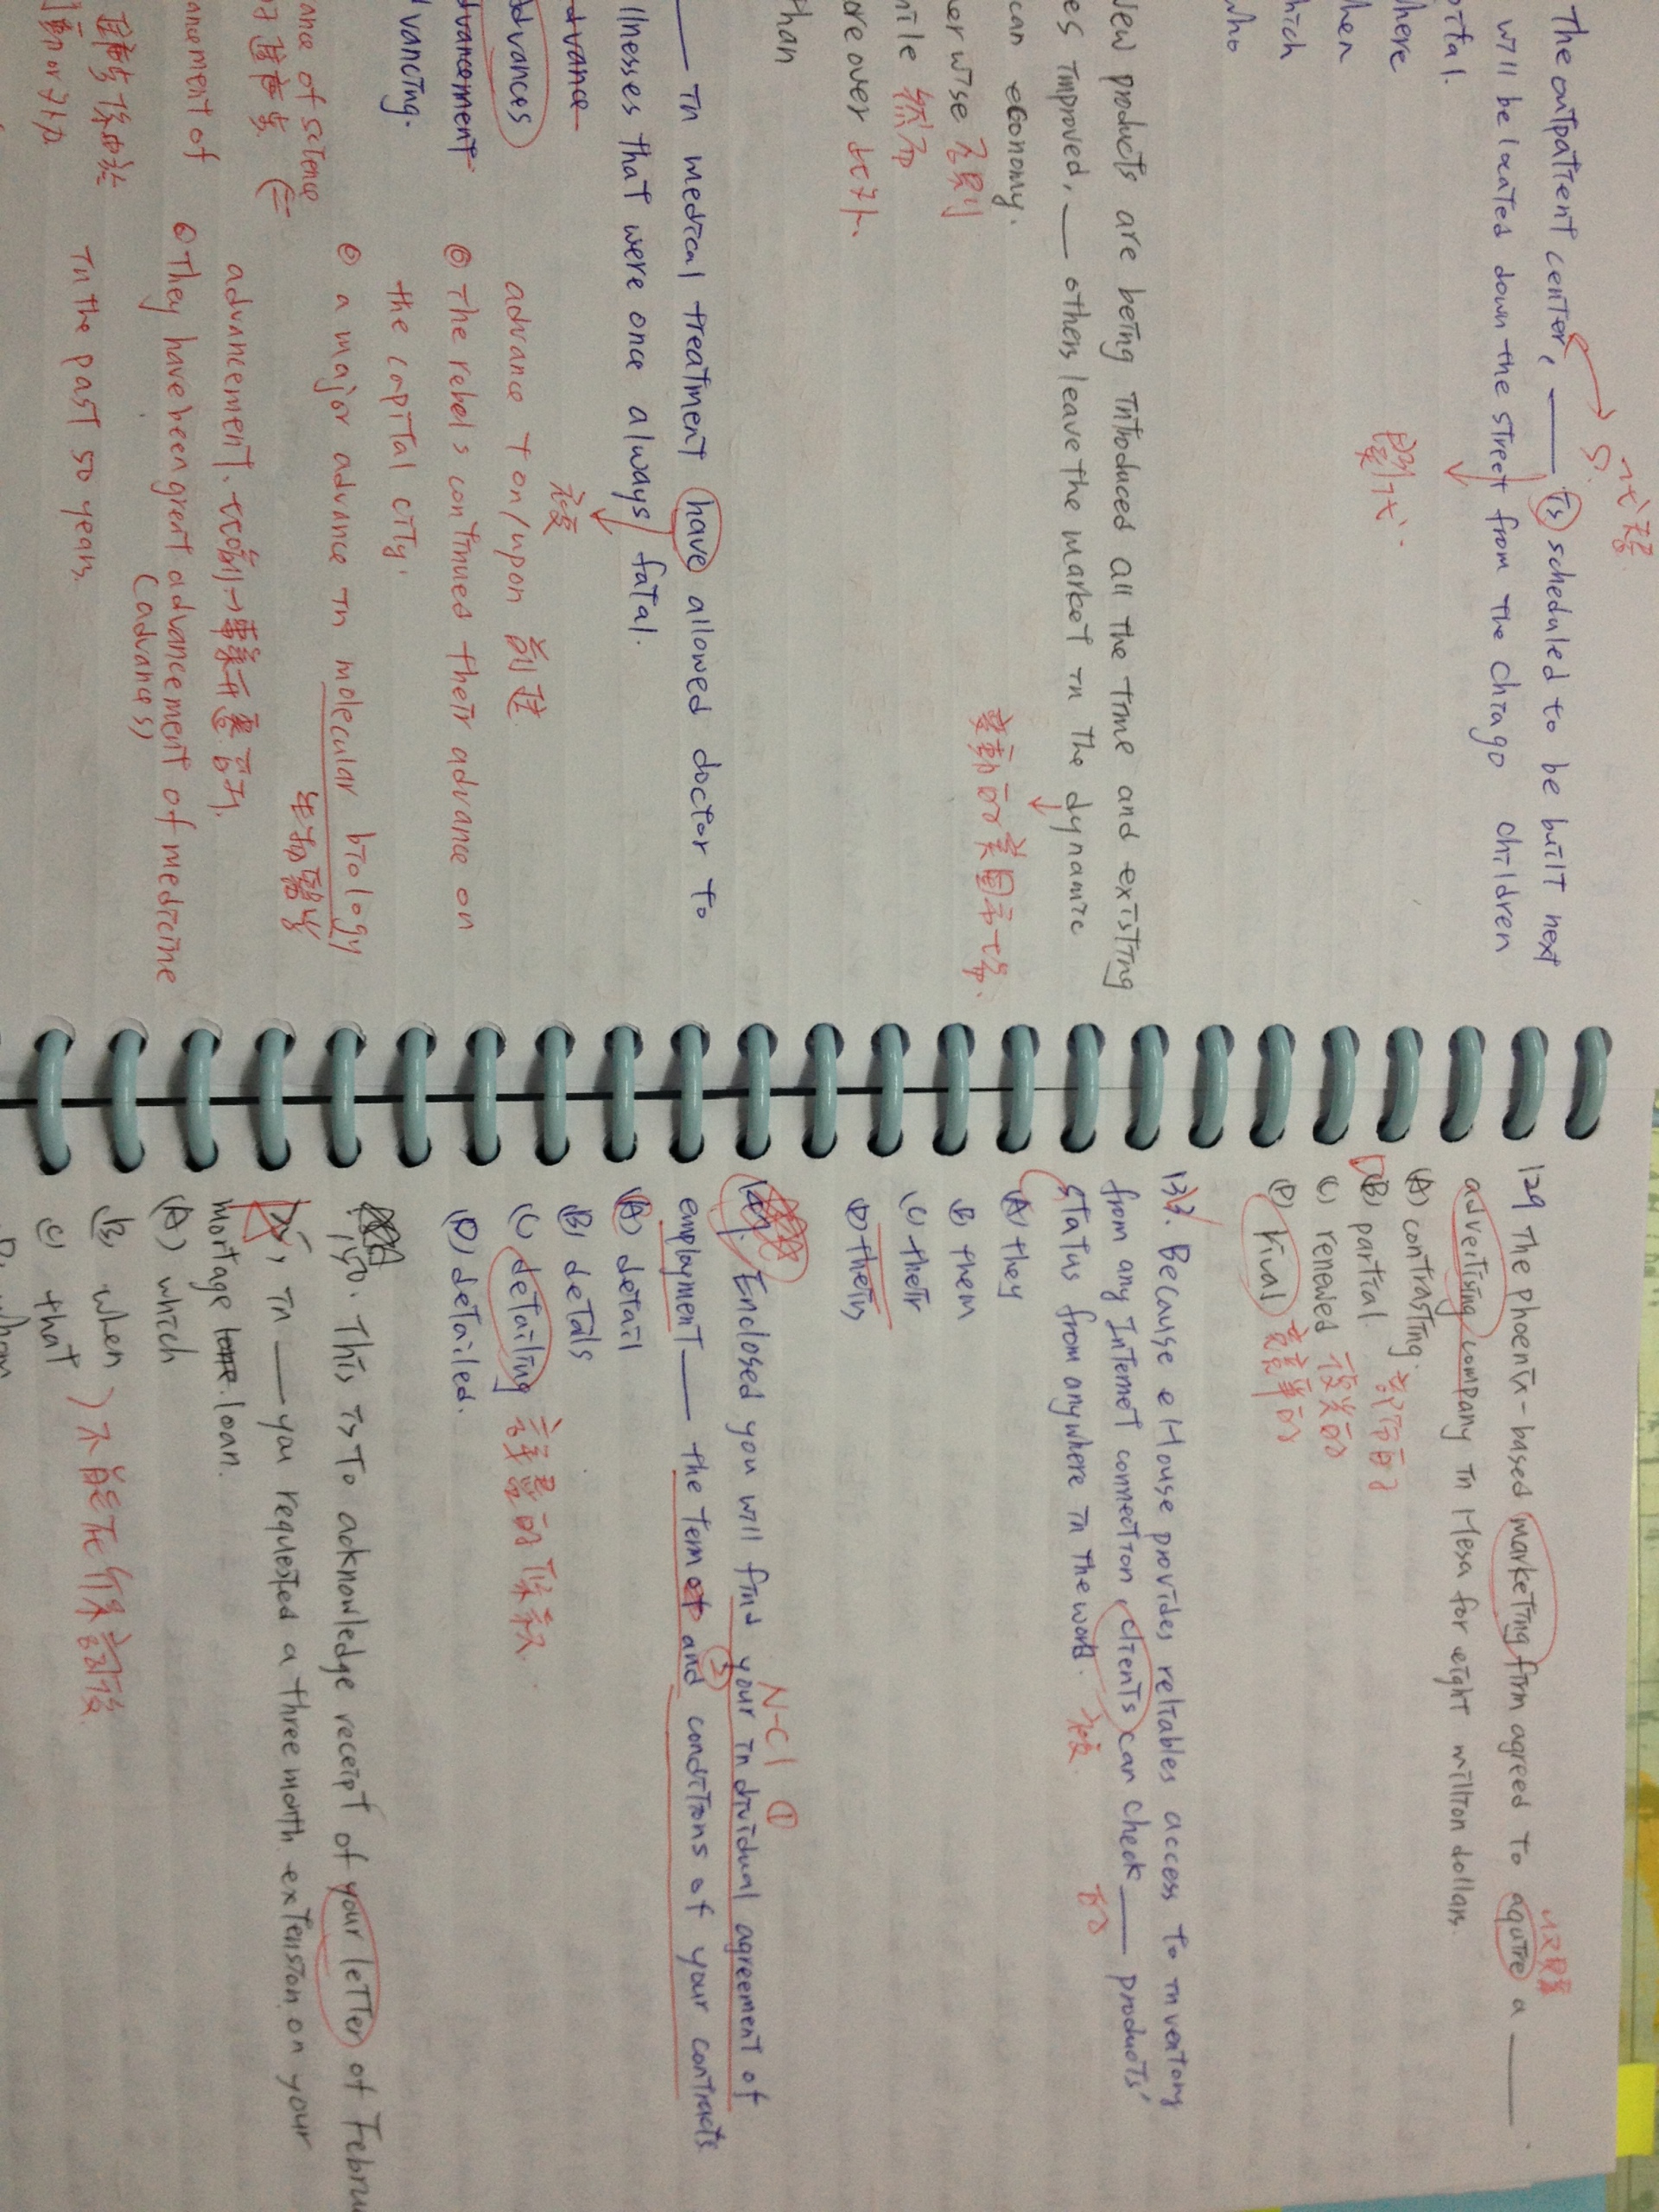 The outpatient center, ___ is scheduled to be built next
will be located down the street from the chiago children
pital.
here
hen
hich
who
St
new products are being introduced all the time and existing
es improved, ___ others leave the market in the dynamic
can economy.
er wise 否則
hile 然而
ore over 此外.
than
變動的美國市場.
___ in medical treatment have allowed doctor to
llnesses that were once always fatal.
advance
advances
dvancement
dvancing.
advance ton/upon 前進
⊙ The rebels continued their advance on
the capital city.
⊙ a major advance in molecular biology
ance of science
advancement.
ancement of
⊙ They have been great advancement of medicine
(advances)
in the past 50 years.
129 The phoenix-based marketing firm agreed to aquire a ___
收購
advertising company in Mesa for eight million dollars.
(A) contrasting.
(B) partial. 部份的
(C) renewed 復興的
(D) rival 競爭的
132. Because eHouse provides reliables access to inventory
from any Internet connection, clients can check ___ products'
status from anywhere in the world.
的
(A) they
(B) them
(C) their
(D) theirs
N-Cl ①
Enclosed you will find your individual agreement of
employment ___ the tem and ② conditions of your contracts
(A) detail
(B) detals
(C) detailing 詳盡的條款.
(D) detailed.
140. This is to acknowledge receipt of your letter of Febru
in ___ you requested a three month extension on your
mortage loan.
(A) which
(B) when
(C) that
不能在介係詞後
whom